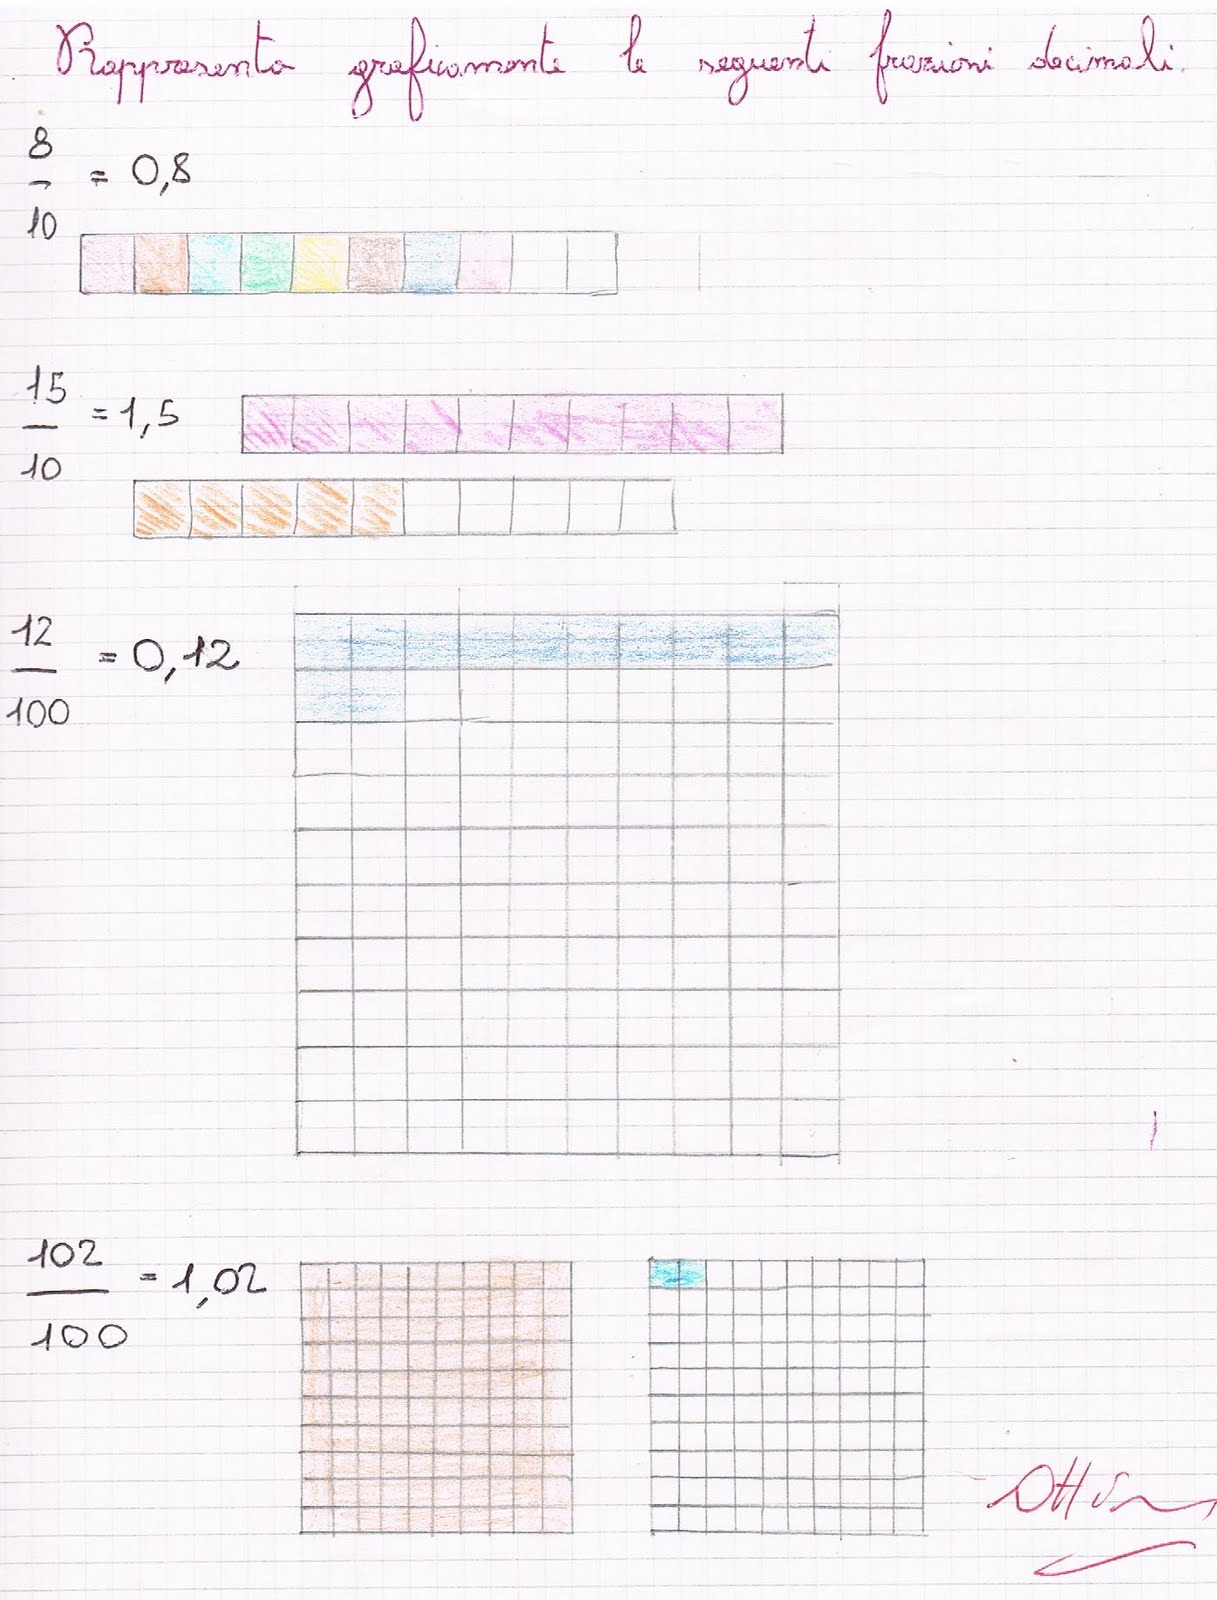 Rappresenta graficamente le seguenti frazioni decimali.
8
— = 0,8
10
15
— = 1,5
10
12
— = 0,12
100
102
— = 1,02
100